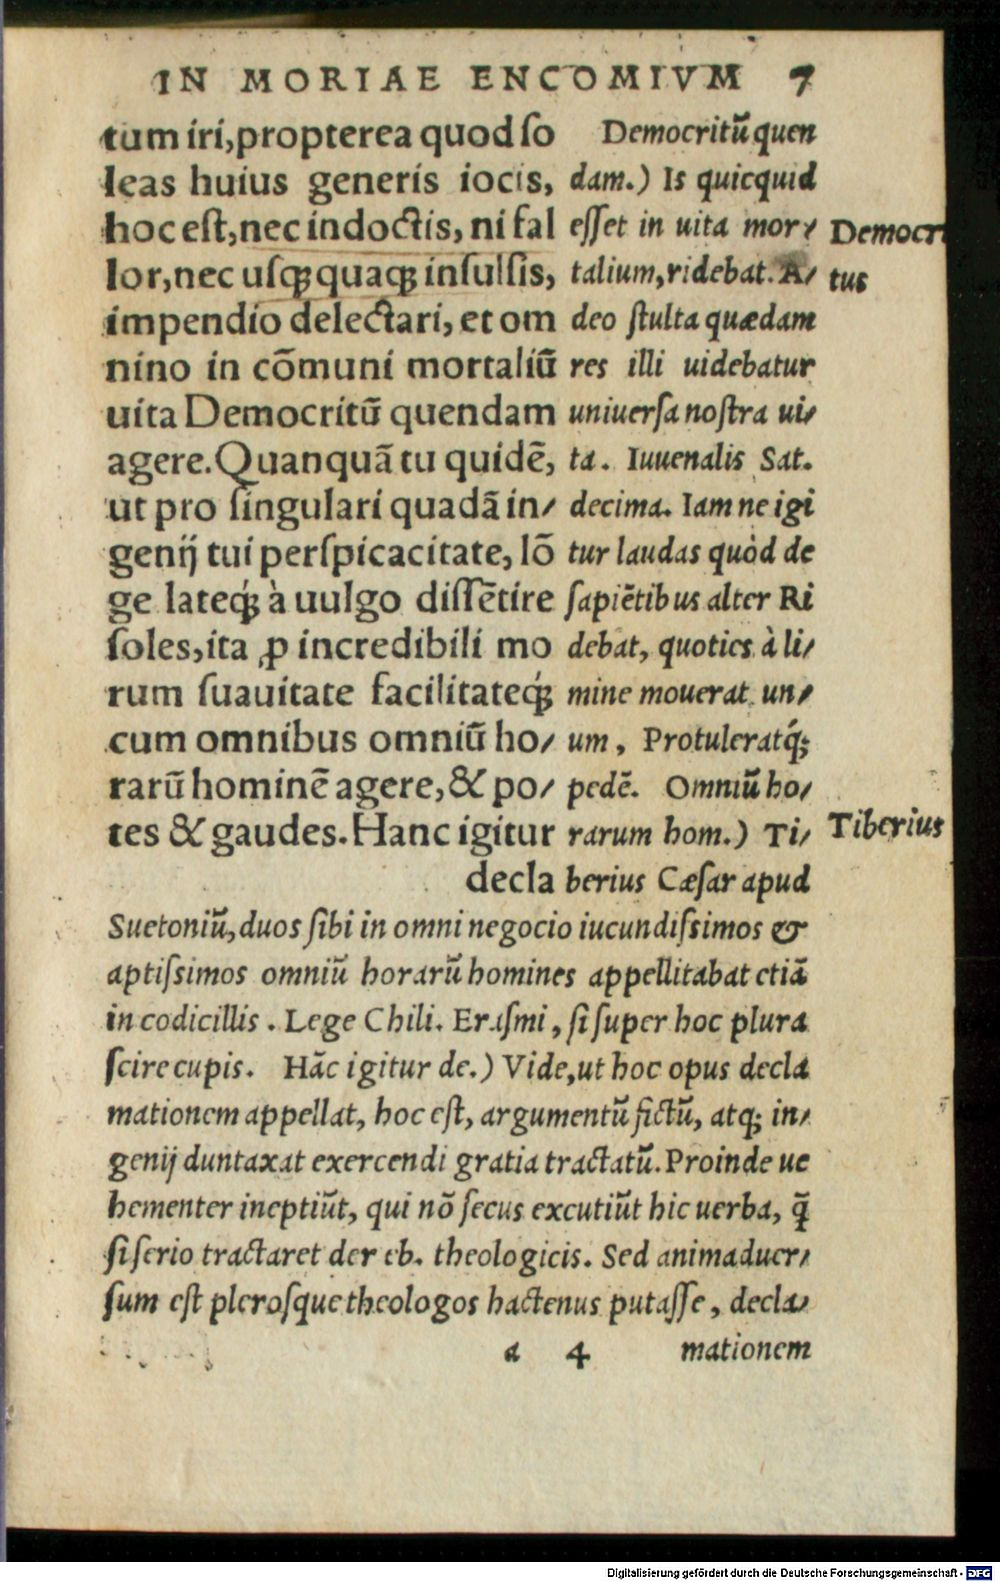 IN MORIAE ENCOMIVM 7
tum iri, propterea quod ſo
leas huius generis iocis,
hoc eſt, nec indoctis, ni fal
lor, nec uſq; quaq; inſulſis,
impendio delectari, et om
nino in cōmuni mortaliū
uita Democritū quendam
agere. Quanquā tu quidē,
ut pro ſingulari quadā in/
genij tui perſpicacitate, lō
ge lateq́; à uulgo diſſētire
ſoles, ita ꝓ incredibili mo
rum ſuauitate facilitateq́;
cum omnibus omniū ho/
rarū hominē agere, & po/
tes & gaudes. Hanc igitur
decla
Democritū quen
dam.) Is quicquid
eſſet in uita mor/
talium, ridebat. A/
deo ſtulta quædam
res illi uidebatur
uniuerſa noſtra ui/
ta. Iuuenalis Sat.
decima. Iam ne igi
tur laudas quòd de
ſapiētibus alter Ri
debat, quoties à li/
mine mouerat un/
um, Protuleratq́;
pedē. Omniū ho/
rarum hom.) Ti/
berius Cæſar apud
Democri
tus
Tiberius
Suetoniū, duos ſibi in omni negocio iucundiſsimos &
aptiſsimos omniū horarū homines appellitabat etiā
in codicillis. Lege Chili. Eraſmi, ſi ſuper hoc plura
ſcire cupis. Hāc igitur de.) Vide, ut hoc opus decla
mationem appellat, hoc eſt, argumentū fictū, atq; in/
genij duntaxat exercendi gratia tractatū. Proinde ue
hementer ineptiūt, qui nō ſecus excutiūt hic uerba, q̄
ſi ſerio tractaret der eb. theologicis. Sed animaduer/
ſum eſt plerosque theologos hactenus putaſſe, decla/
a 4 mationem
Digitalisierung gefördert durch die Deutsche Forschungsgemeinschaft - DFG